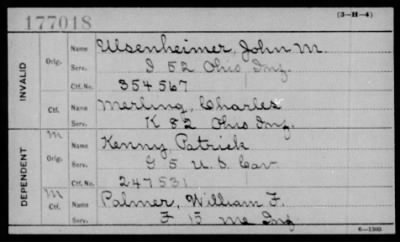 177018
(3-H-4)
INVALID
Orig.
Name Ulsenheimer, John M.
Serv. I 52 Ohio Inf.
Ctf. No. 354567
Ctf.
Name Merling, Charles
Serv. K 82 Ohio Inf.
DEPENDENT
M
Orig.
Name Kenny, Patrick
Serv. G 5 U.S. Cav
Ctf. No. 247531
M
Ctf.
Name Palmer, William F.
Serv. F 15 Me Inf
6-1380